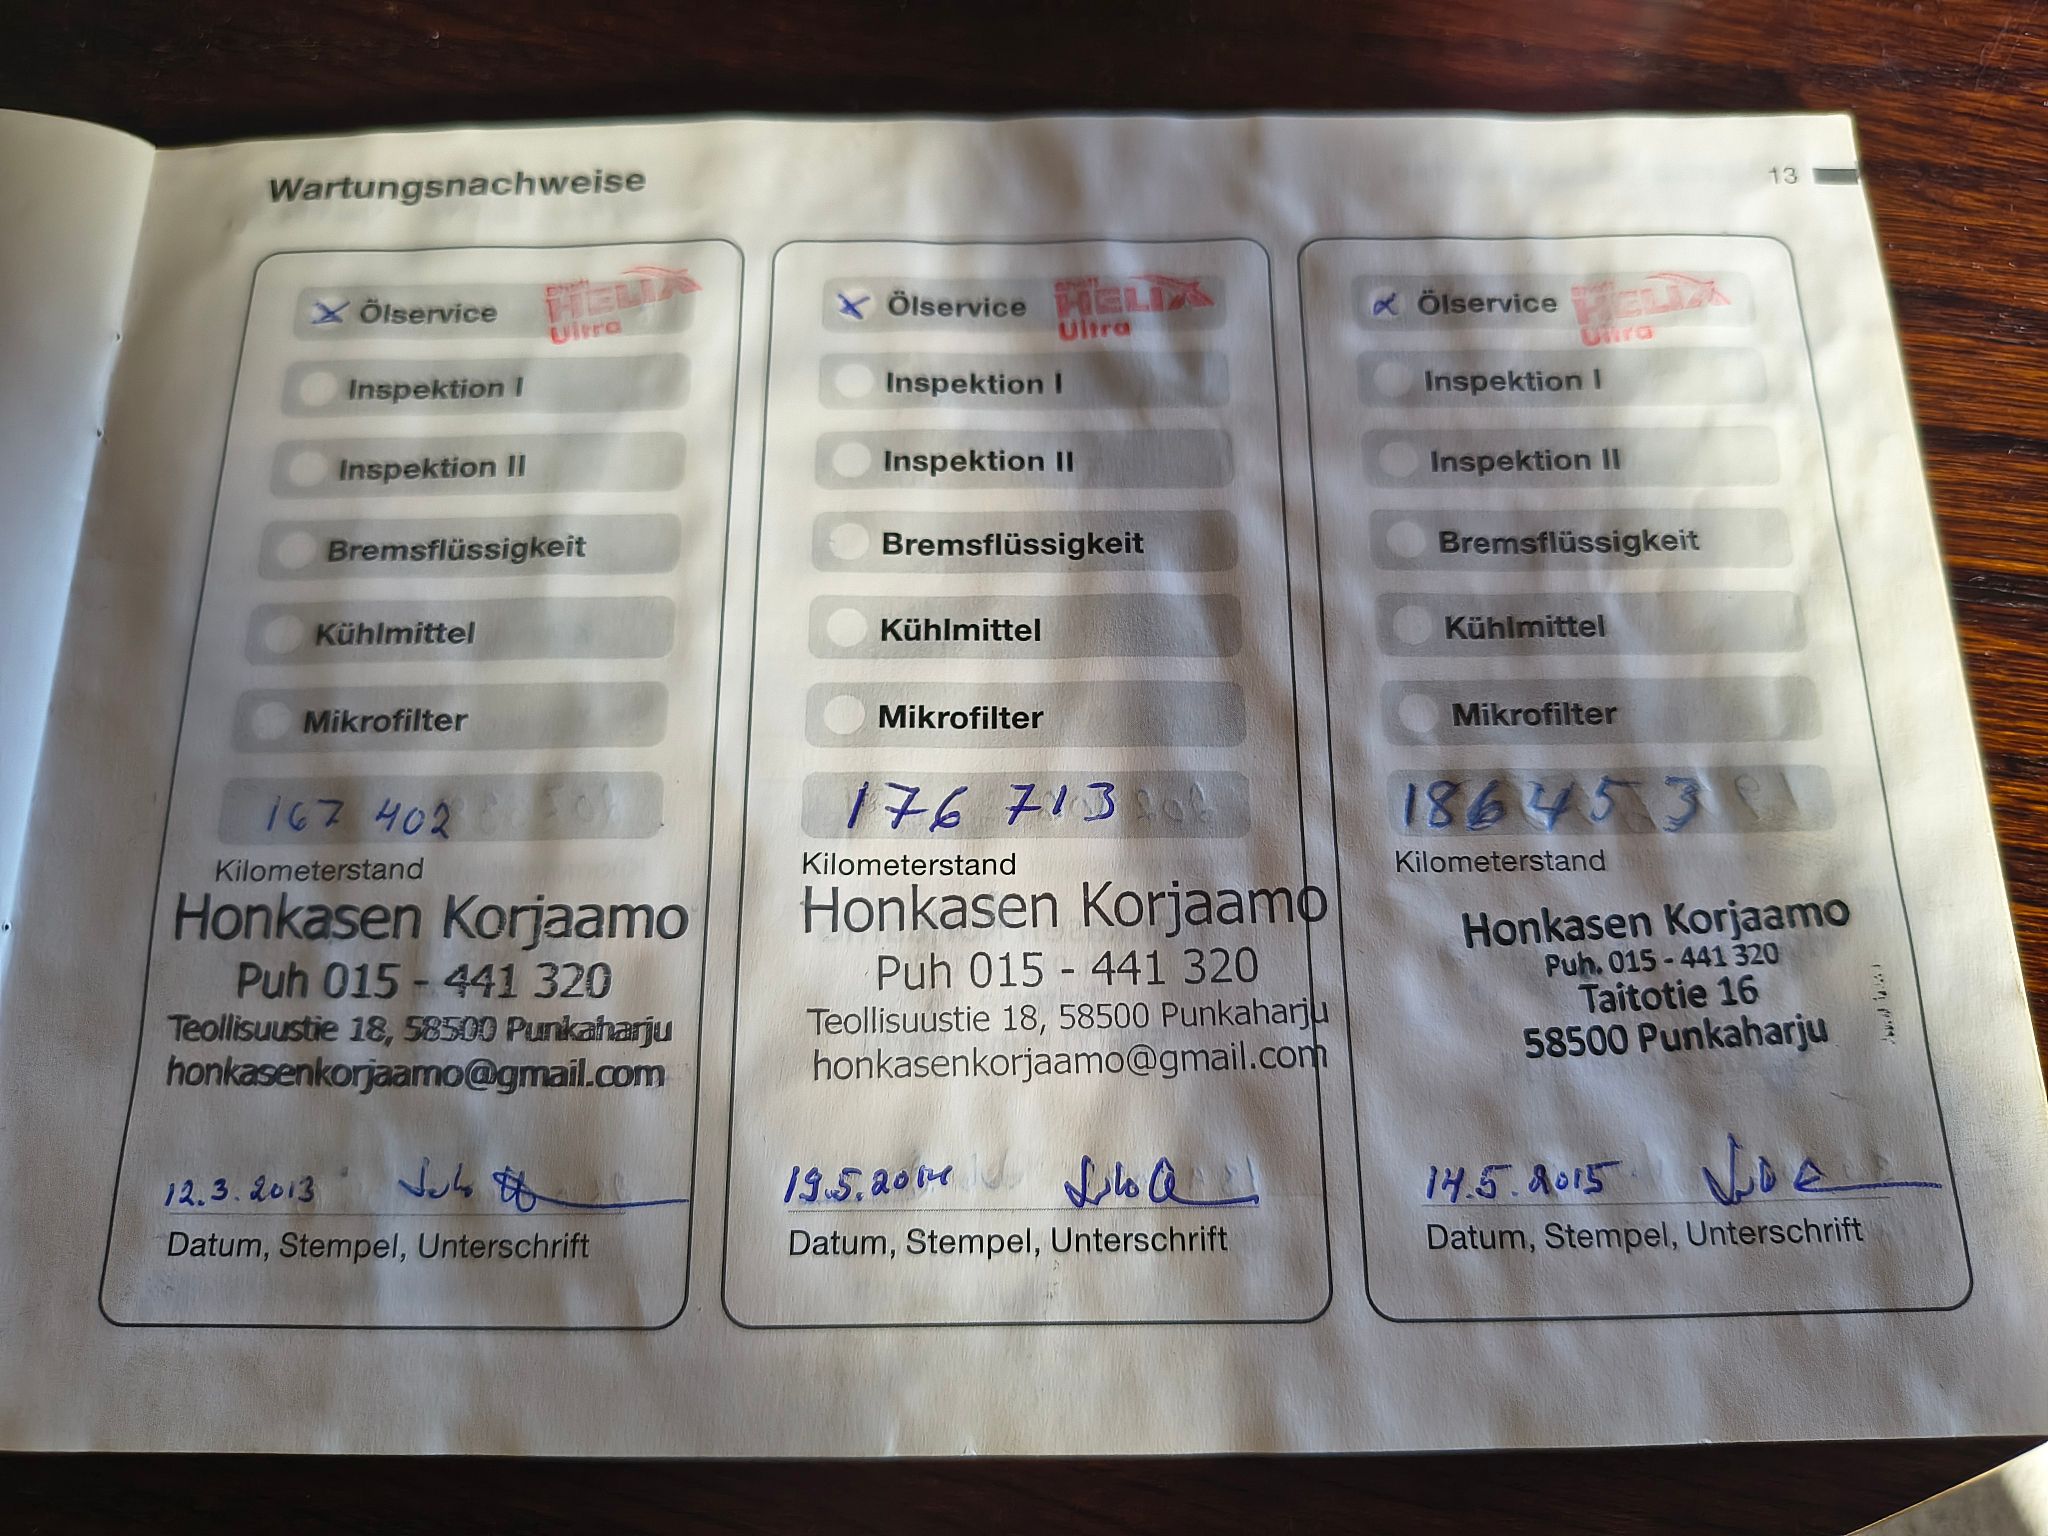 Wartungsnachweise
13
Ölservice
Shell
HELIX
Ultra
Inspektion I
Inspektion II
Bremsflüssigkeit
Kühlmittel
Mikrofilter
167 402
Kilometerstand
Honkasen Korjaamo
Puh 015 - 441 320
Teollisuustie 18, 58500 Punkaharju
honkasenkorjaamo@gmail.com
12.3.2013
Datum, Stempel, Unterschrift
Ölservice
Shell
HELIX
Ultra
Inspektion I
Inspektion II
Bremsflüssigkeit
Kühlmittel
Mikrofilter
176 713
Kilometerstand
Honkasen Korjaamo
Puh 015 - 441 320
Teollisuustie 18, 58500 Punkaharju
honkasenkorjaamo@gmail.com
19.5.2014
Datum, Stempel, Unterschrift
Ölservice
Shell
HELIX
Ultra
Inspektion I
Inspektion II
Bremsflüssigkeit
Kühlmittel
Mikrofilter
186453
Kilometerstand
Honkasen Korjaamo
Puh. 015 - 441 320
Taitotie 16
58500 Punkaharju
14.5.2015
Datum, Stempel, Unterschrift